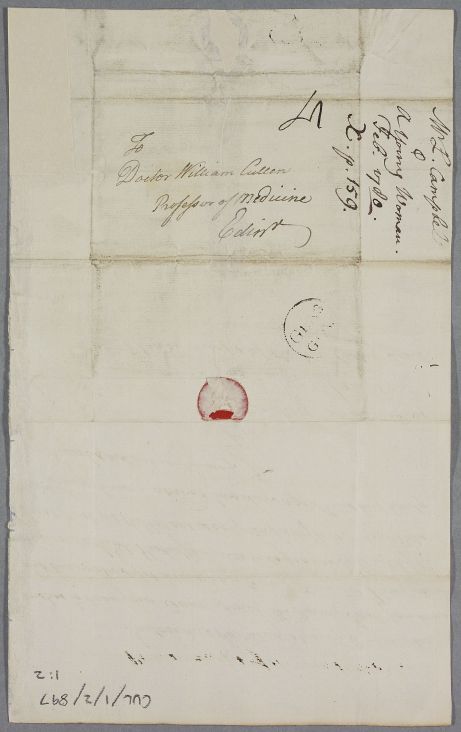 To
Doctor William Cullen
Professor of Medicine
Edinr
4
Mr L. Campbell
A Young Woman.
Feb. 1780.
X. p. 159.
CUL/1/2/897
1:2